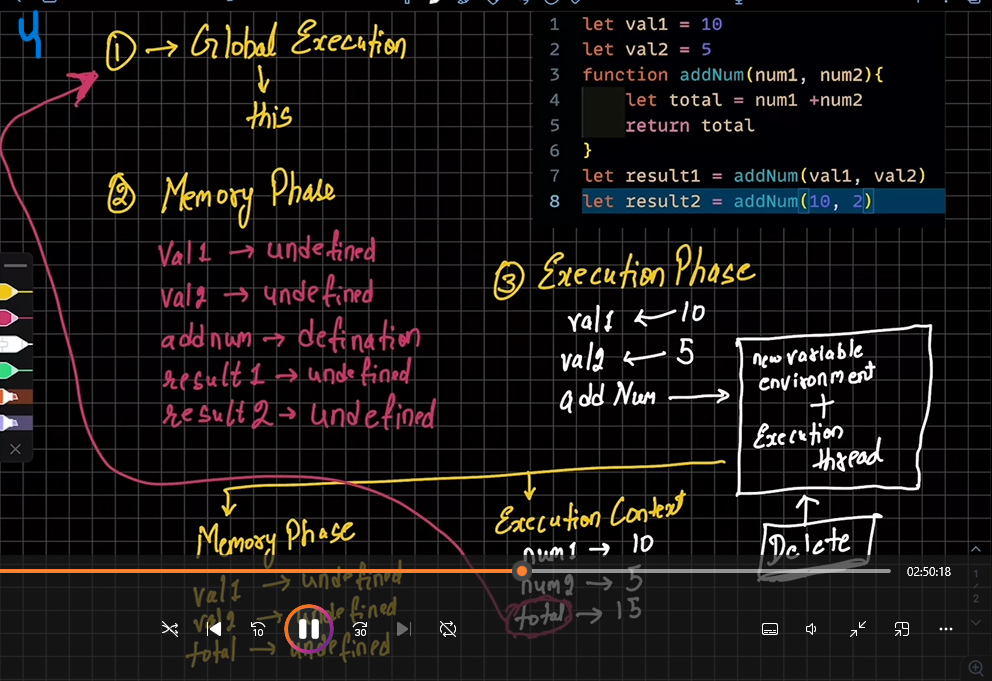 4
① → Global Execution
↓
this
② Memory Phase
val1 → undefined
val2 → undefined
addnum → defination
result1 → undefined
result2 → undefined
1 let val1 = 10
2 let val2 = 5
3 function addNum(num1, num2){
4 let total = num1 +num2
5 return total
6 }
7 let result1 = addNum(val1, val2)
8 let result2 = addNum(10, 2)
③ Execution Phase
val1 ← 10
val2 ← 5
add Num →
new variable
environment
+
Execution
thread
Delete
Memory Phase
val1 → undefined
val2 → undefined
total → undefined
Execution Context
num1 → 10
num2 → 5
total → 15
02:50:18
10
30
1
2